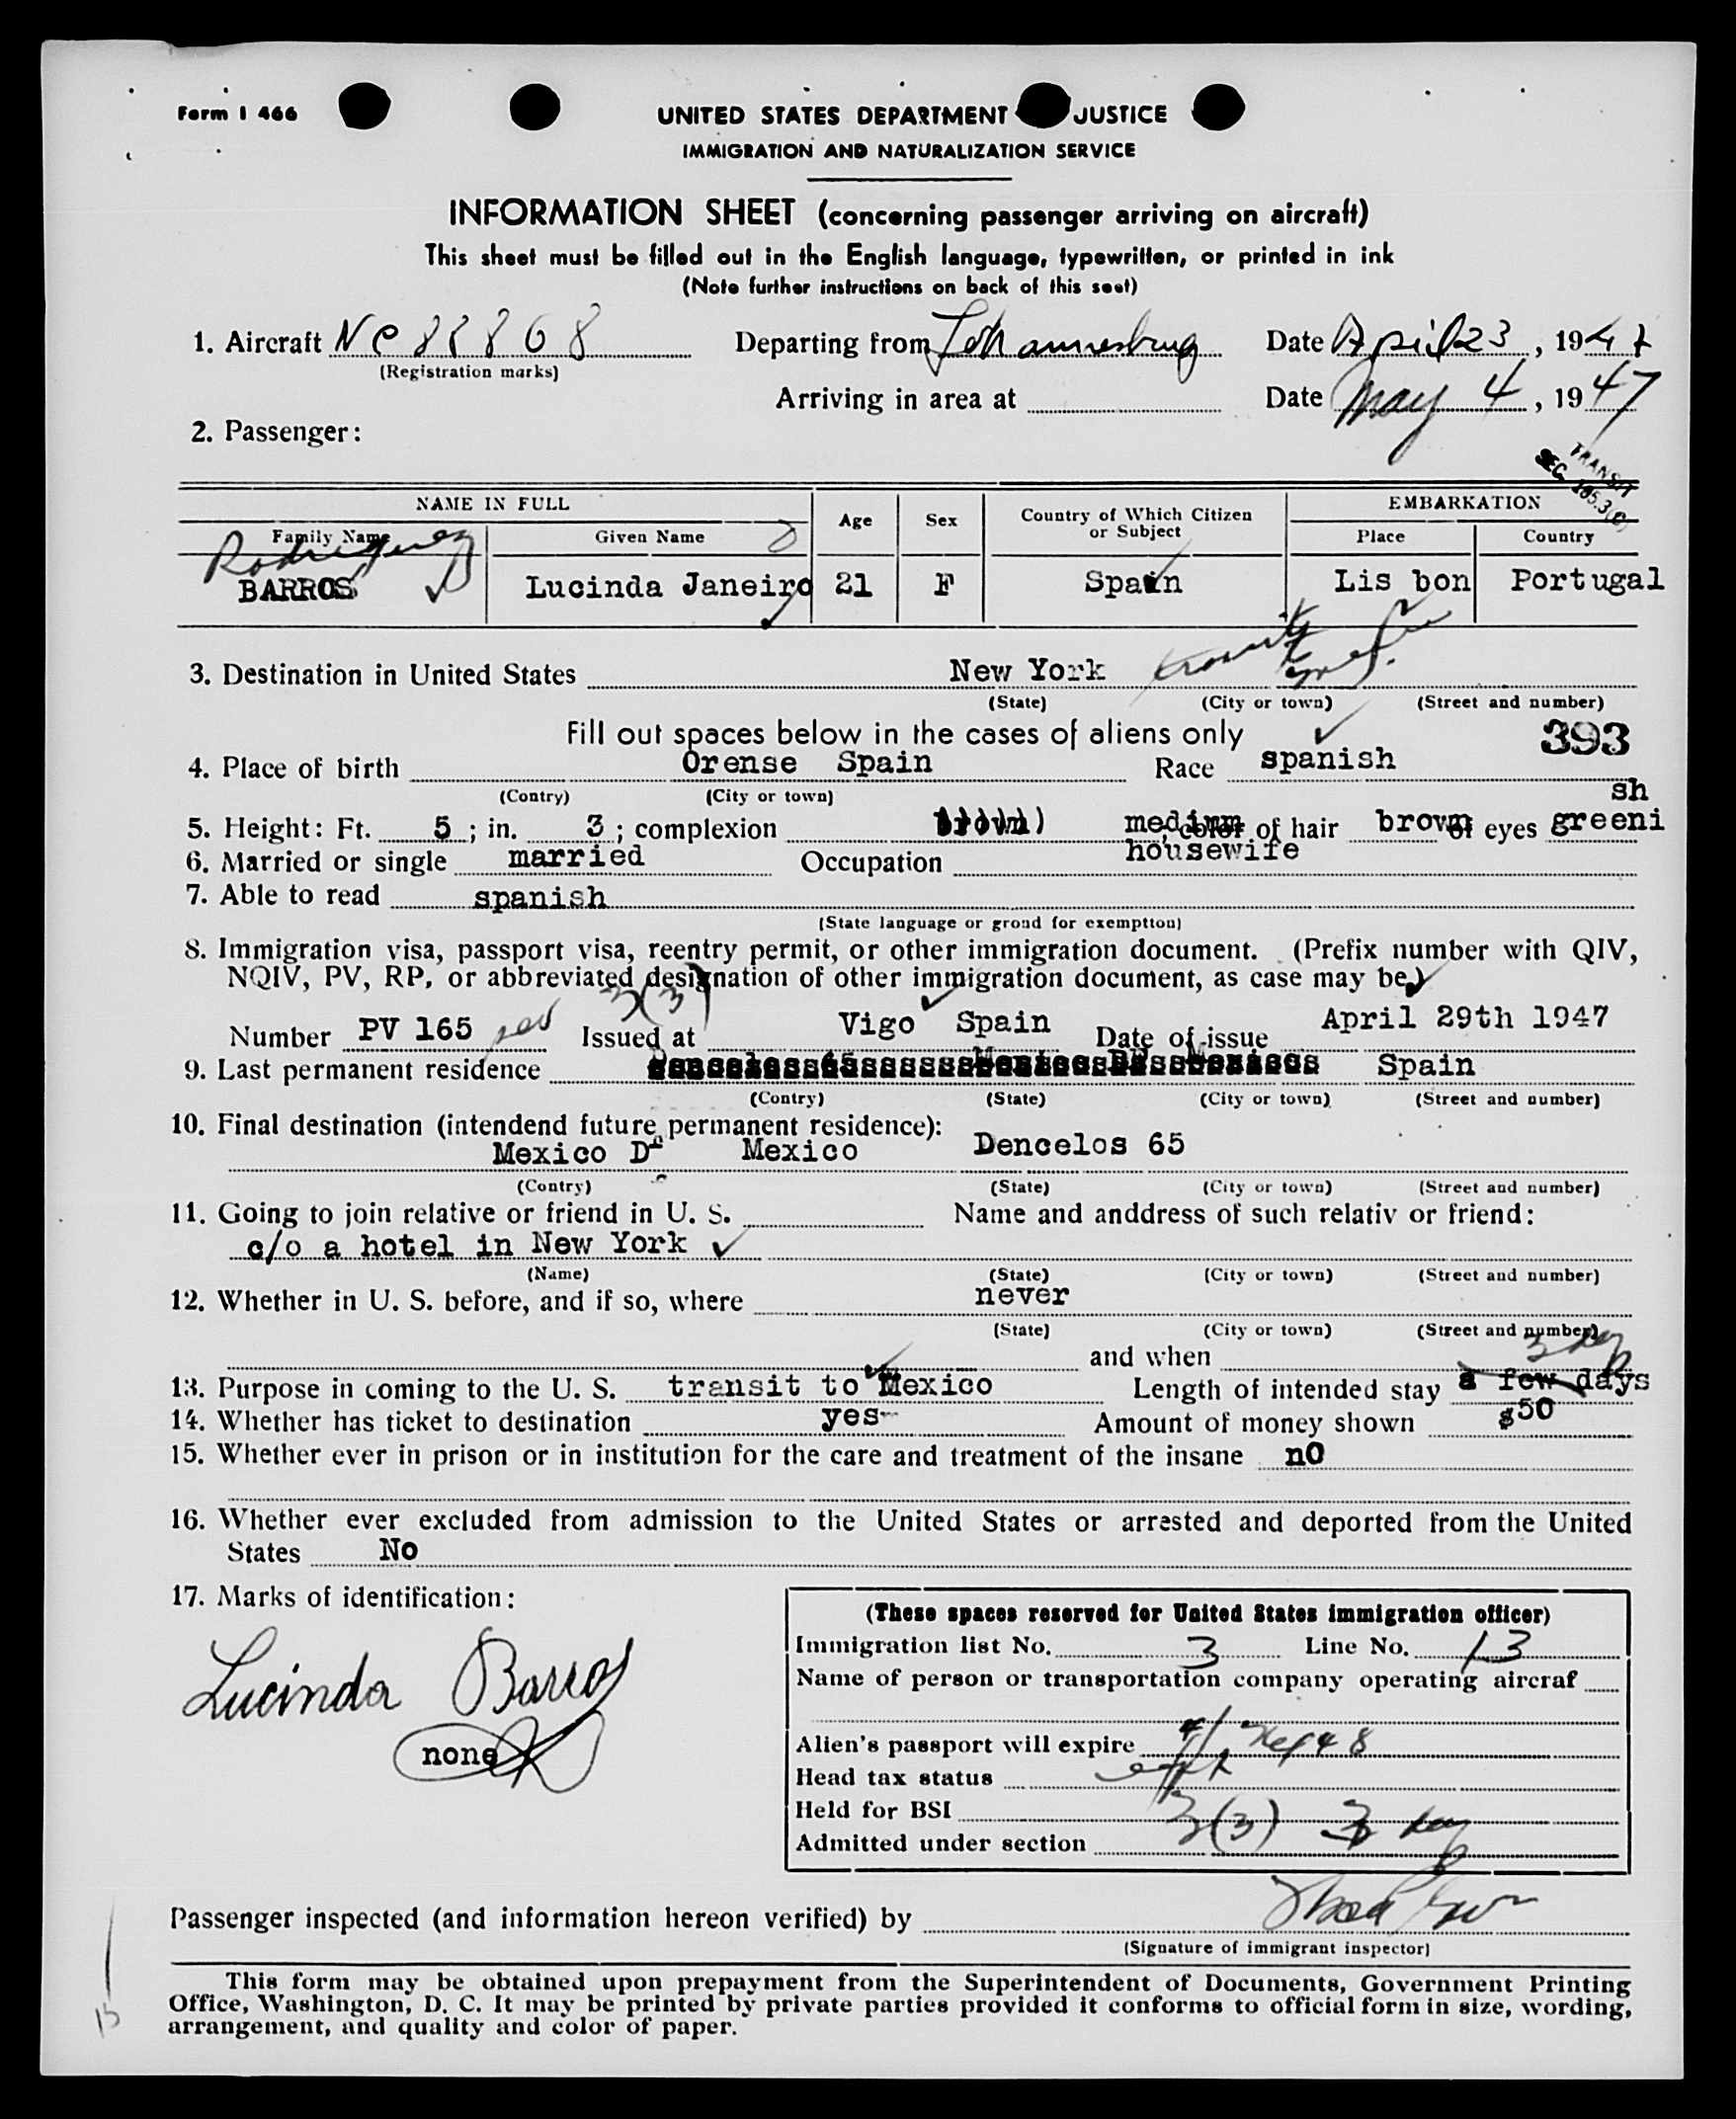 Form I 466
UNITED STATES DEPARTMENT JUSTICE
IMMIGRATION AND NATURALIZATION SERVICE
INFORMATION SHEET (concerning passenger arriving on aircraft)
This sheet must be filled out in the English language, typewritten, or printed in ink
(Note further instructions on back of this seet)
1. Aircraft NC 88868 Departing from Johannesburg Date April 23, 1947
(Registration marks)
Arriving in area at Date May 4, 1947
2. Passenger:
TRANSIT
SEC.
NAME IN FULL Age Sex Country of Which Citizen or Subject EMBARKATION
Family Name Given Name Place Country
Rodriguez
BARROS Lucinda Janeiro 21 F Spain Lis bon Portugal
3. Destination in United States New York transit
(State) (City or town) (Street and number)
Fill out spaces below in the cases of aliens only
393
4. Place of birth Orense Spain Race spanish
(Contry) (City or town)
sh
5. Height: Ft. 5; in. 3; complexion medium, color of hair brown of eyes greeni
6. Married or single married Occupation housewife
7. Able to read spanish
(State language or grond for exemption)
8. Immigration visa, passport visa, reentry permit, or other immigration document. (Prefix number with QIV,
NQIV, PV, RP, or abbreviated designation of other immigration document, as case may be.)
3(3)
Number PV 165 Issued at Vigo Spain Date of issue April 29th 1947
9. Last permanent residence Spain
(Contry) (State) (City or town) (Street and number)
10. Final destination (intendend future permanent residence):
Mexico DF Mexico Dencelos 65
(Contry) (State) (City or town) (Street and number)
11. Going to join relative or friend in U. S. Name and anddress of such relativ or friend:
c/o a hotel in New York
(Name) (State) (City or town) (Street and number)
12. Whether in U. S. before, and if so, where never
(State) (City or town) (Street and number)
and when 3 days
13. Purpose in coming to the U. S. transit to Mexico Length of intended stay a few days
14. Whether has ticket to destination yes Amount of money shown $50
15. Whether ever in prison or in institution for the care and treatment of the insane nO
16. Whether ever excluded from admission to the United States or arrested and deported from the United
States No
17. Marks of identification:
Lucinda Barros
none
(These spaces reserved for United States immigration officer)
Immigration list No. 3 Line No. 13
Name of person or transportation company operating aircraf
Alien's passport will expire
Head tax status
Held for BSI
Admitted under section 3(3) 3 days
Passenger inspected (and information hereon verified) by
(Signature of immigrant inspector)
This form may be obtained upon prepayment from the Superintendent of Documents, Government Printing
Office, Washington, D. C. It may be printed by private parties provided it conforms to official form in size, wording,
arrangement, and quality and color of paper.
15